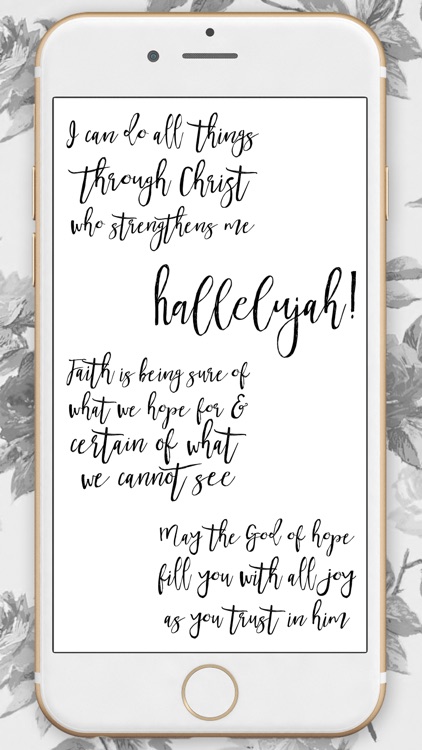 I can do all things
through Christ
who strengthens me
hallelujah!
Faith is being sure of
what we hope for &
certain of what
we cannot see
May the God of hope
fill you with all joy
as you trust in him